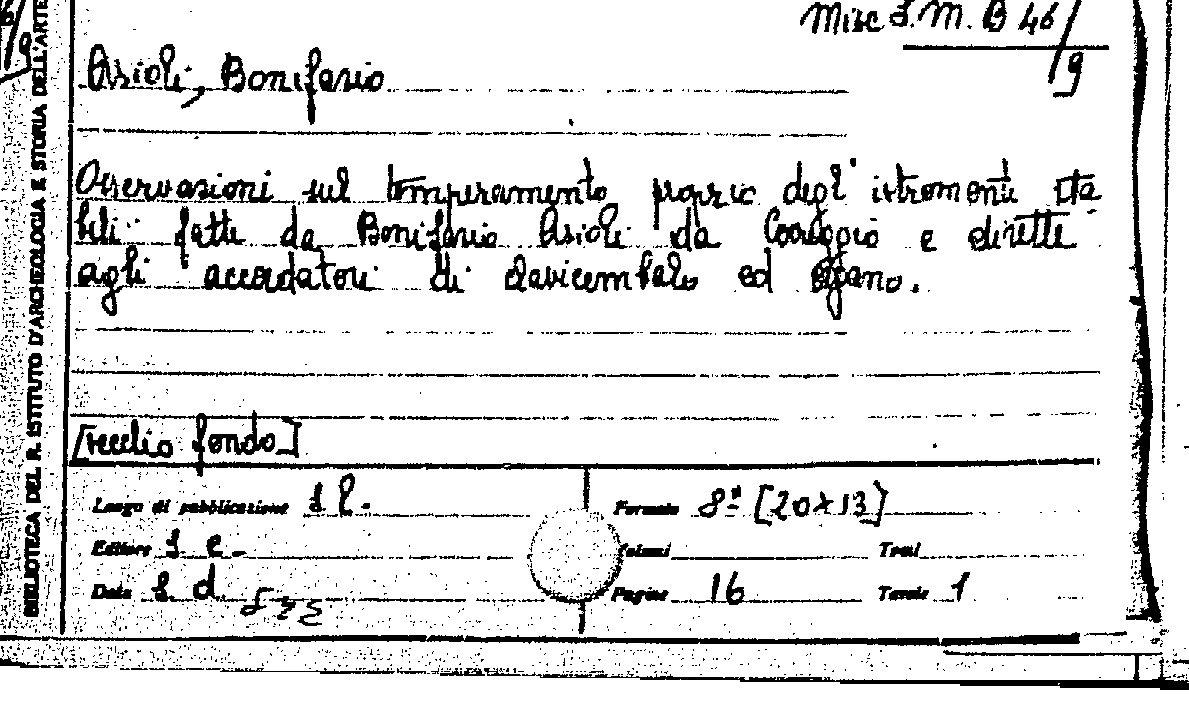 Misc S. M. B 46/9
Asioli, Bonifazio
Osservazioni sul temperamento proprio degl' istromenti sta
bili fatte da Bonifazio Asioli da Correggio e dirette
agli accordatori di clavicembalo ed organo.
[vecchio fondo]
Luogo di pubblicazione s l.
Formato 8º [20x13]
Editore s e.
Volumi
Tomi
Data s d
Pagine 16
Tavole 1
BIBLIOTECA DEL R. ISTITUTO D'ARCHEOLOGIA E STORIA DELL'ARTE